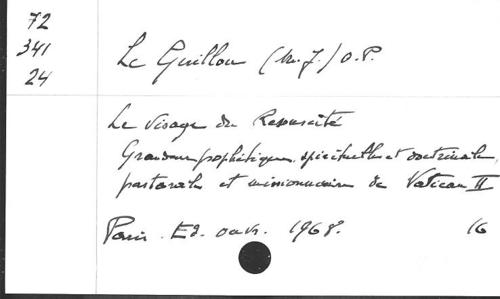 72
341
24
Le Guillou (M. J.) O.P.
Le Visage du Ressuscité
Grandeur prophétique, spirituelle et doctrinale,
pastorale et missionnaire de Vatican II
Paris. Ed. ouvr. 1968. 16